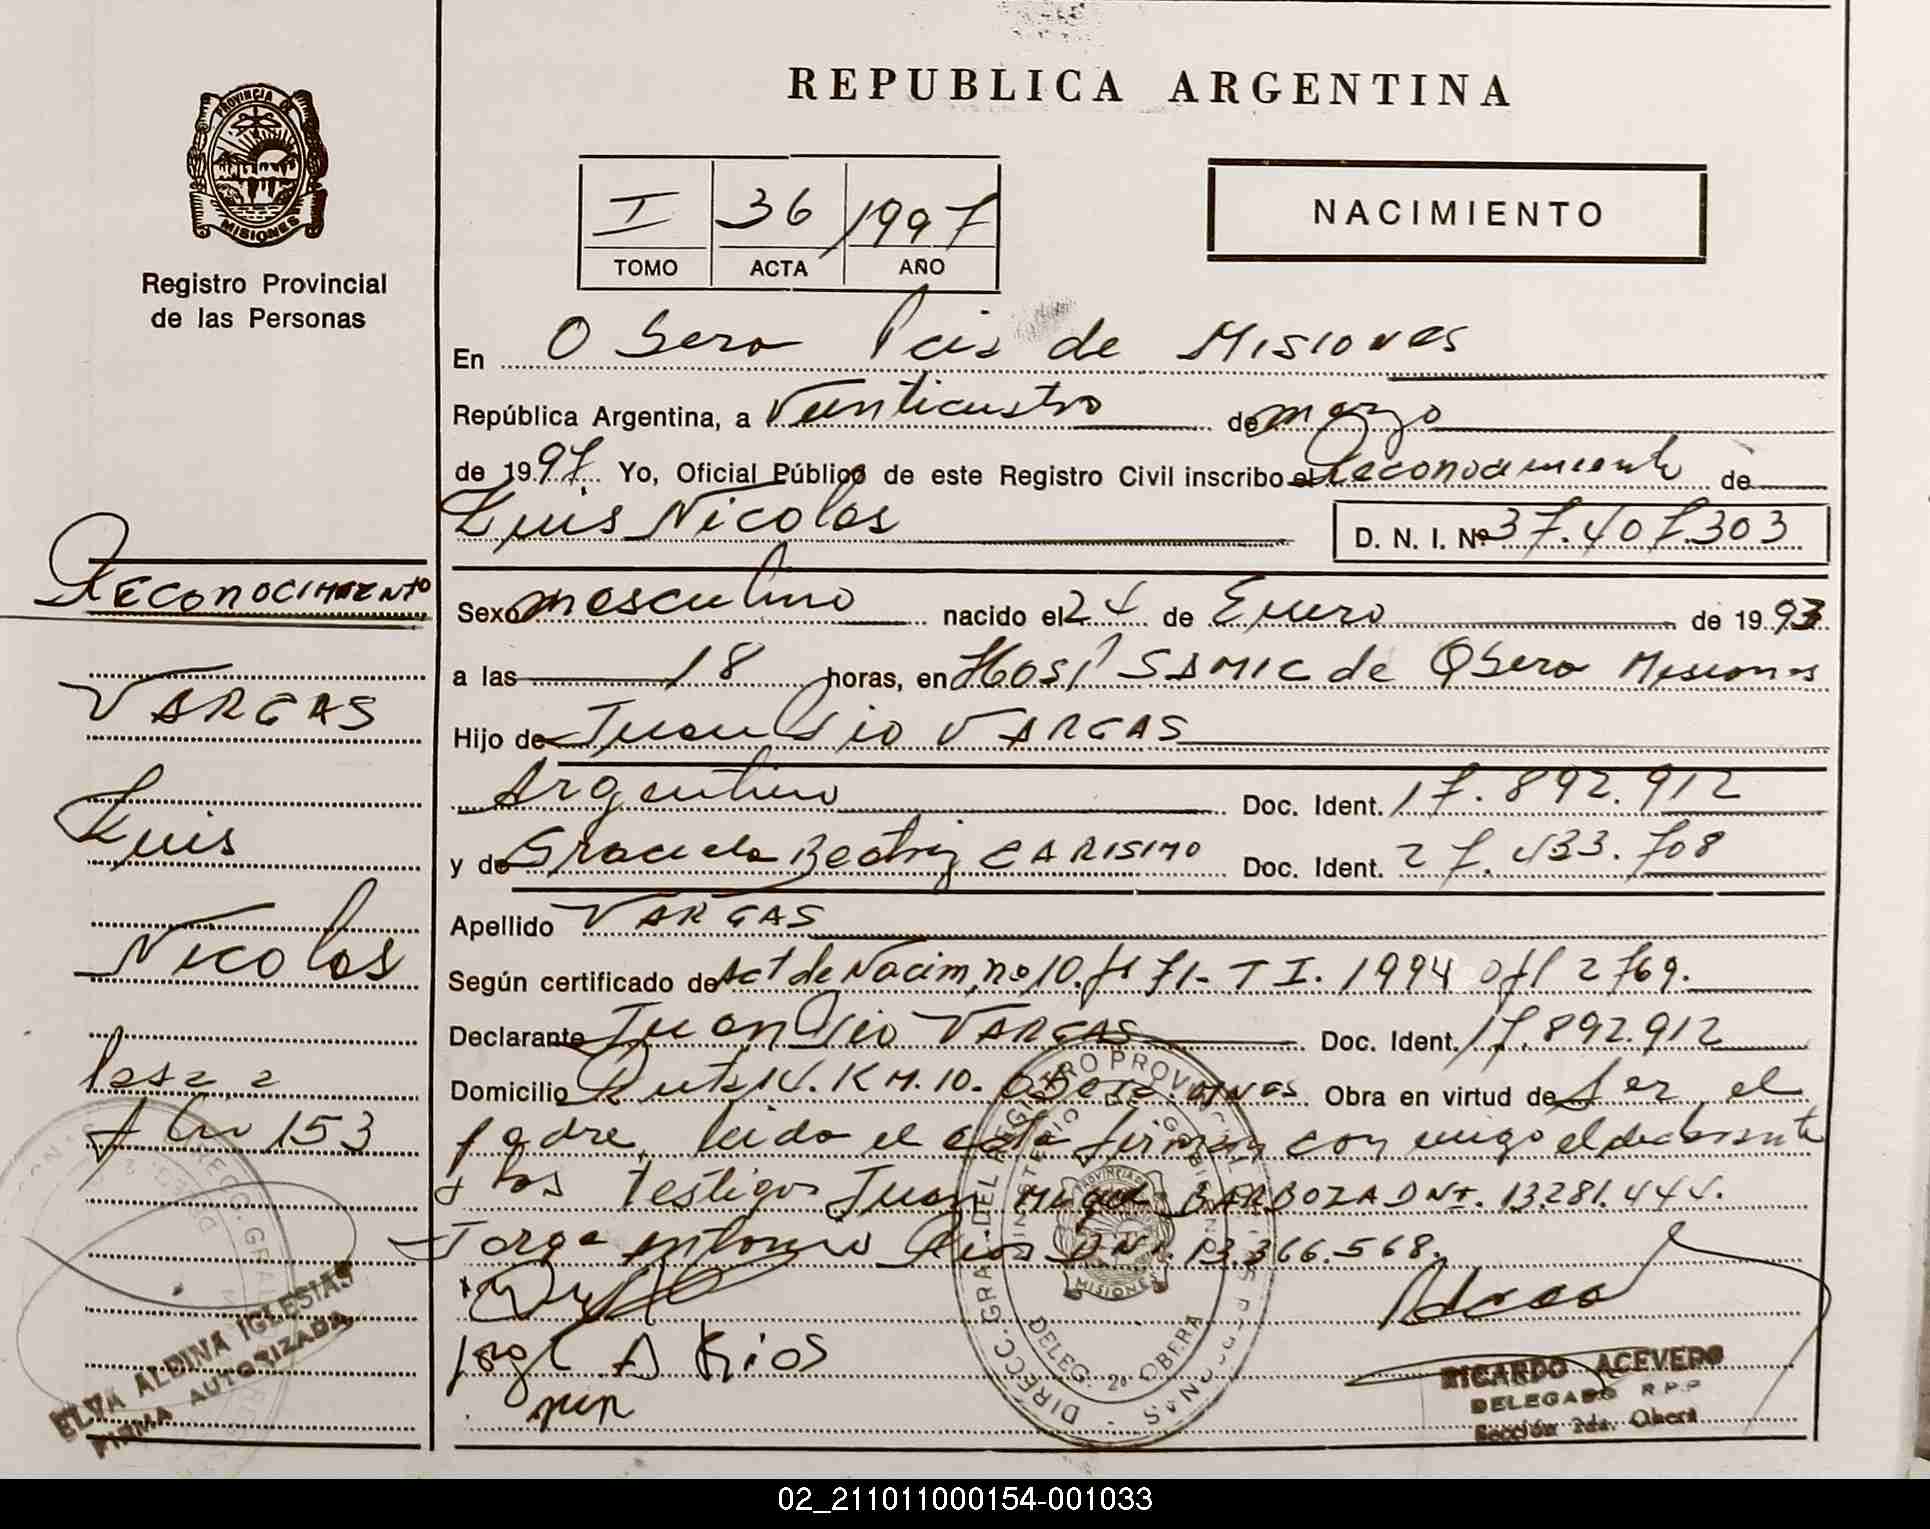 REPUBLICA ARGENTINA
PROVINCIA DE
MISIONES
Registro Provincial
de las Personas
I 36 1997
TOMO ACTA AÑO
NACIMIENTO
En Obera Pcia de Misiones
República Argentina, a Veinticuatro de marzo
de 1997. Yo, Oficial Público de este Registro Civil inscribo el Reconocimiento de
Luis Nicolas D. N. I. Nº 37.407.303
Sexo masculino nacido el 24 de Enero de 1993
a las 18 horas, en Hosp SAMIC de Obera Misiones
Hijo de Juan Pio VARGAS
Argentino Doc. Ident. 17.892.912
y de Graciela Beatriz CARISIMO Doc. Ident. 27.433.708
Apellido VARGAS
Según certificado de Act de Nacim, nº 10. fº 71- T I. 1994 Of/ 2769.
Declarante Juan Pio VARGAS Doc. Ident. 17.892.912
Domicilio Ruta 14. KM. 10. Obera. Mnes Obra en virtud de ser el
padre, leida el acta firman conmigo el declarante
y los testigos Juan Miguel BARBOZA DNI. 13.281.444.
Jorge Antonio Rios DNI. 13.366.568.
Jorge A Rios
RICARDO ACEVEDO
DELEGADO R.P.P
Sección 2da. Oberá
DIRECC. GRAL. DEL REGISTRO PROVINCIAL DE LAS PERSONAS
MINISTERIO DE GOBIERNO
PROVINCIA DE
MISIONES
DELEG. 2ª OBERA
RECONOCIMIENTO
VARGAS
Luis
Nicolas
Pasa a
folio 153
ELVA ALDINA IGLESIAS
FIRMA AUTORIZADA
02_211011000154-001033